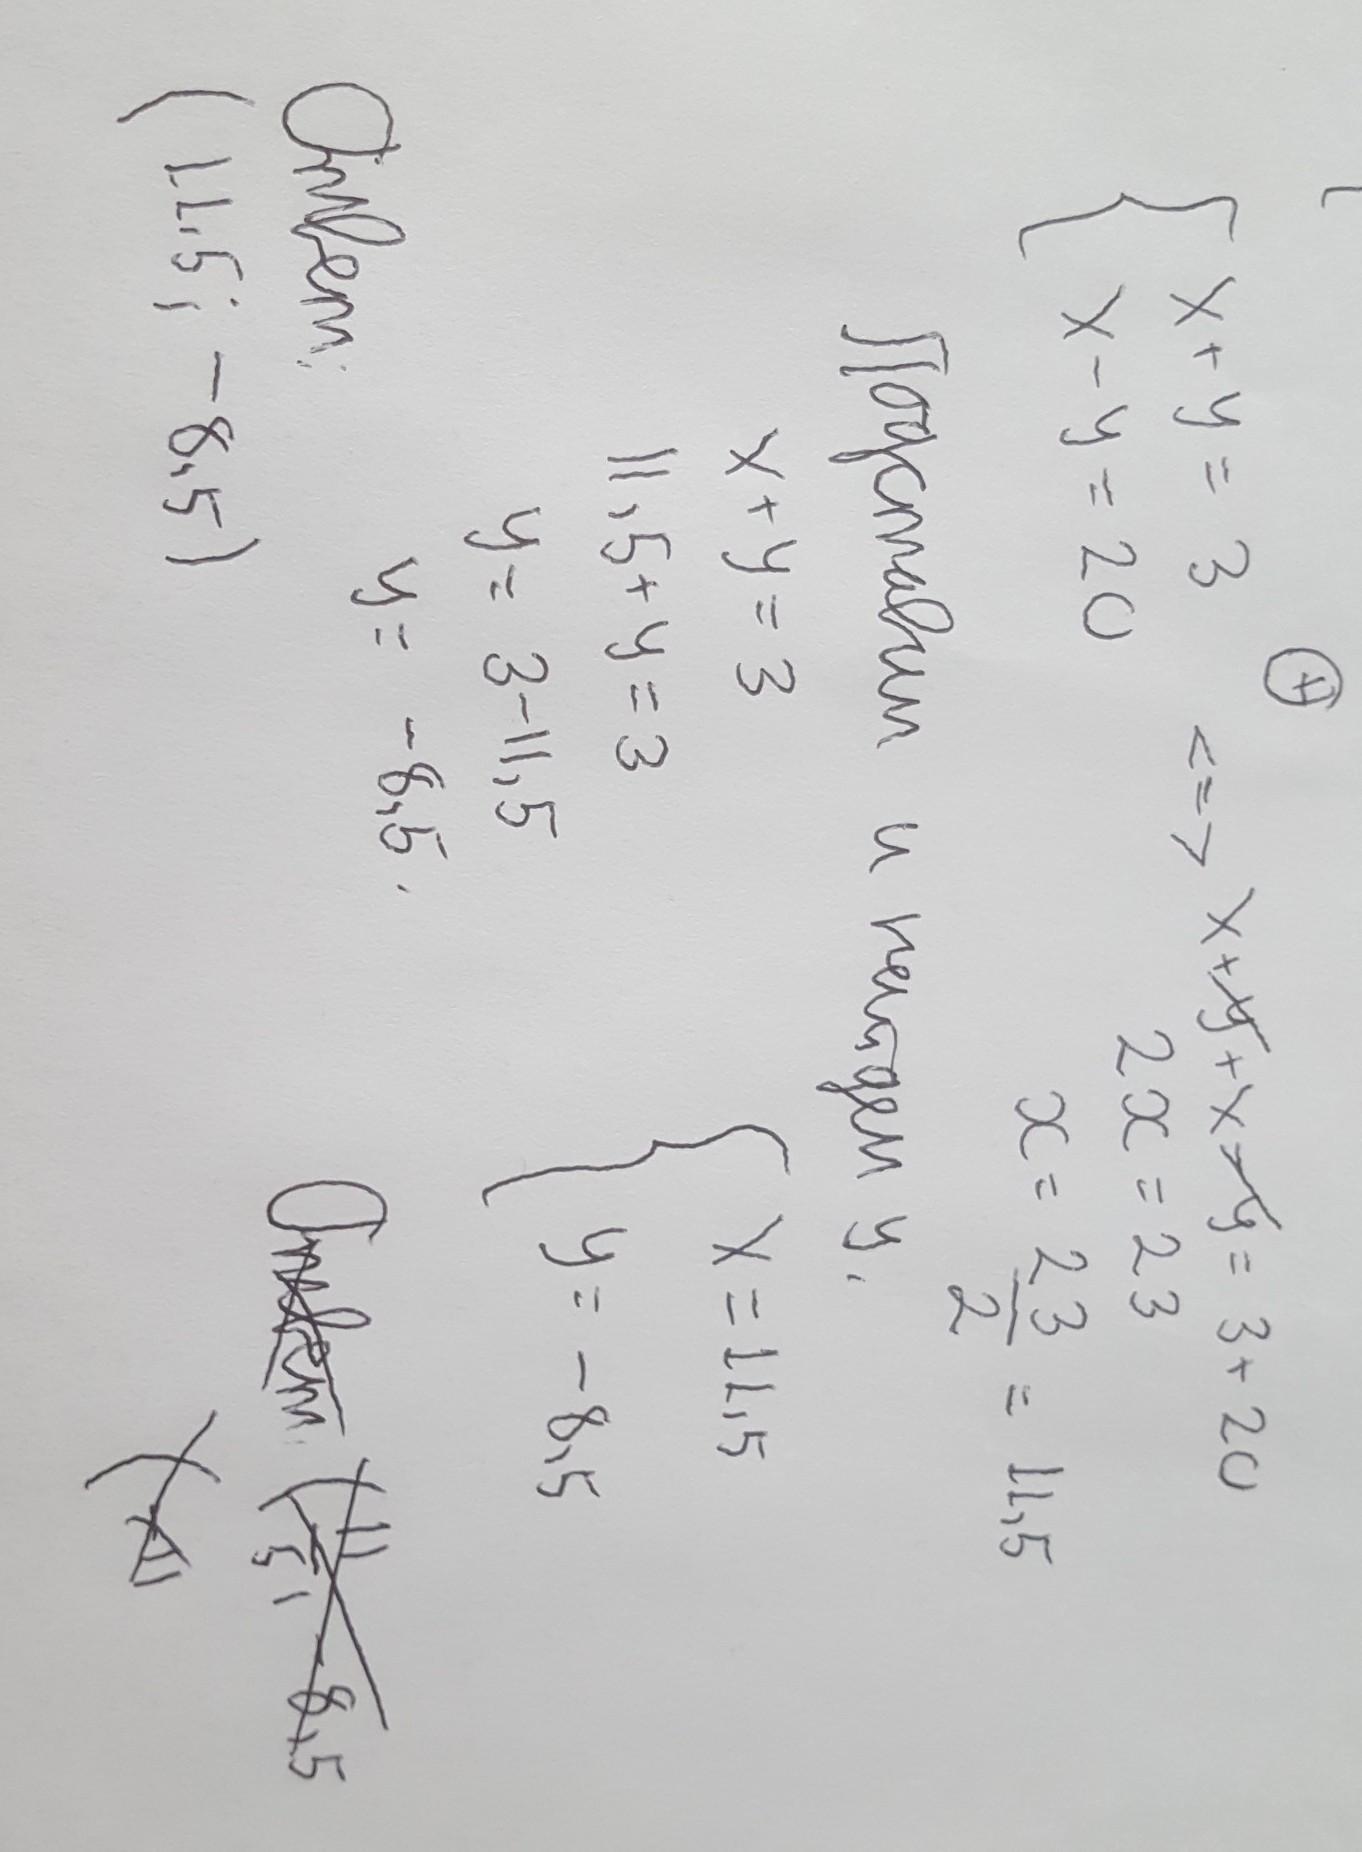 x + y = 3 (+) <=> x + y + x - y = 3 + 20
x - y = 20
2x = 23
x = 23/2 = 11,5
Подставим и найдем y.
x + y = 3
11,5 + y = 3
y = 3 - 11,5
y = -8,5.
x = 11,5
y = -8,5
Ответ:
(11,5; -8,5)
Ответ: (11,5; -8,5